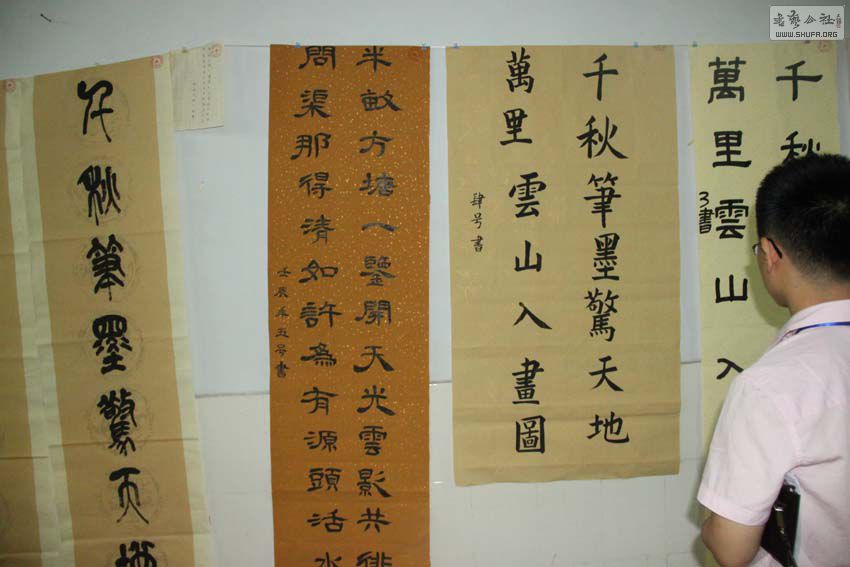 書藝公社
WWW.SHUFA.ORG
千秋筆墨驚天地
半畝方塘一鑒開天光雲影共徘
問渠那得清如許為有源頭活水
壬辰年五号書
千秋筆墨驚天地
萬里雲山入畫圖
肆号書
千秋
萬里雲山入
書